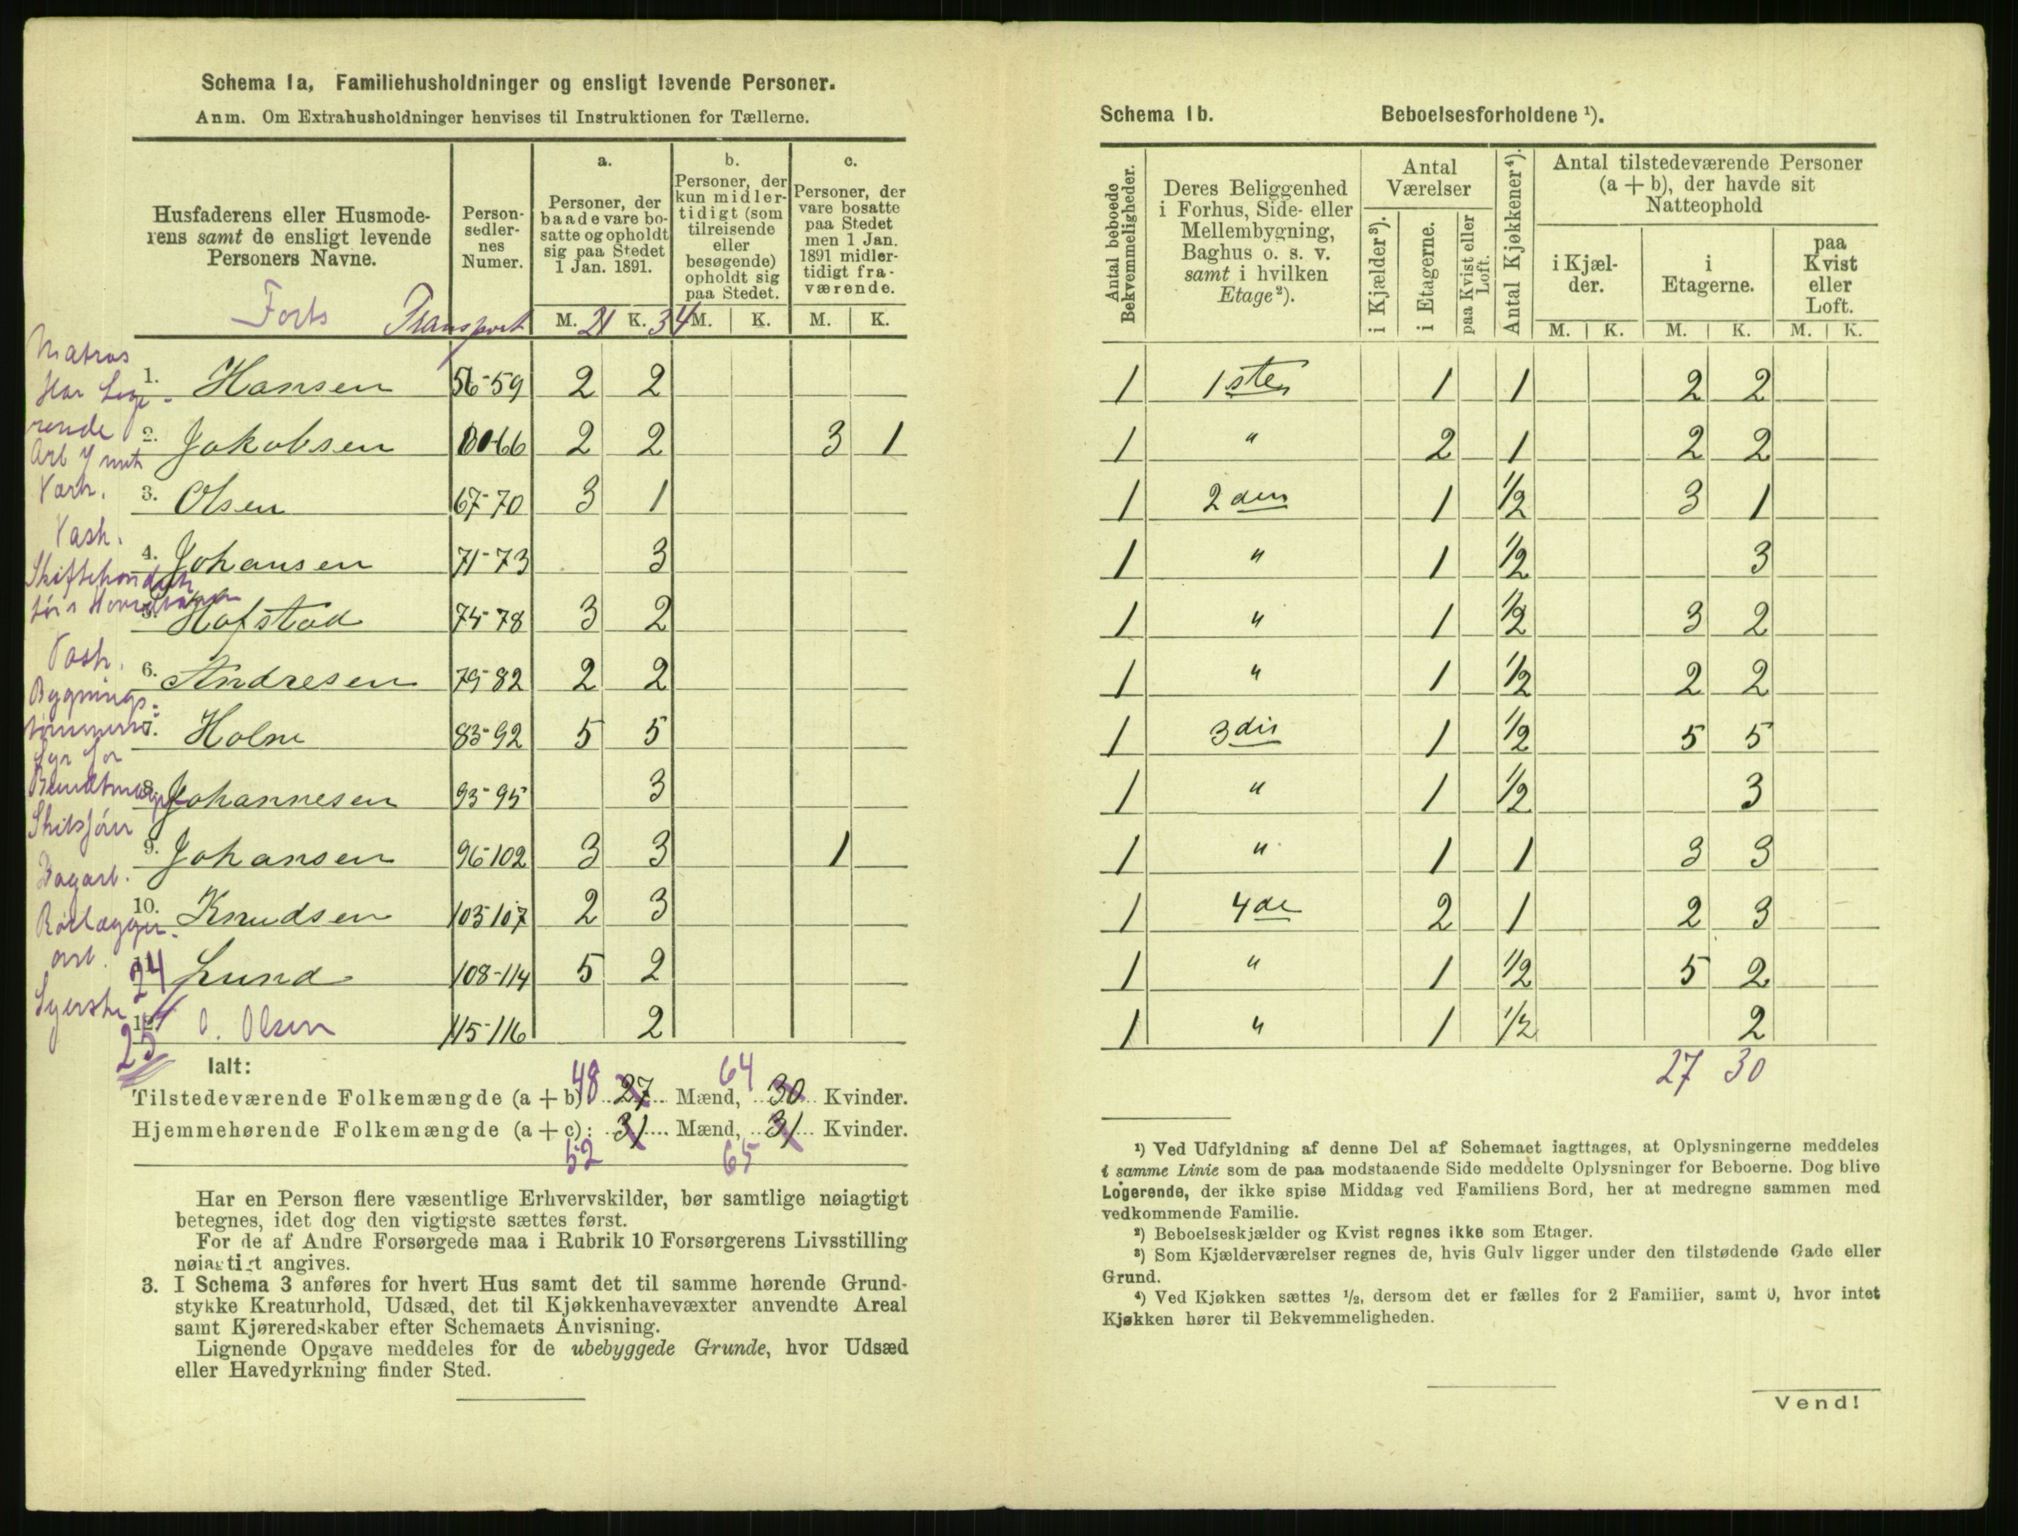 Schema 1a, Familiehusholdninger og ensligt levende Personer.
Anm. Om Extrahusholdninger henvises til Instruktionen for Tællerne.
Husfaderens eller Husmode-
rens samt de ensligt levende
Personers Navne.
Person-
sedler-
nes
Numer.
a.
Personer, der
baade vare bo-
satte og opholdt
sig paa Stedet
1 Jan. 1891.
b.
Personer, der
kun midler-
tidigt (som
tilreisende
eller
besøgende)
opholdt sig
paa Stedet.
c.
Personer, der
vare bosatte
paa Stedet
men 1 Jan.
1891 midler-
tidigt fra-
værende.
Forts Transport M. 21 K. 34 M. K. M. K.
Matros
1. Hansen 56-59 2 2
2. Jakobsen 60-66 2 2 3 1
3. Olsen 67-70 3 1
Vask.
4. Johansen 71-73 3
5. Hofstad 74-78 3 2
Vask.
6. Andresen 79-82 2 2
Bygnings-
7. Holm 83-92 5 5
8. Johannesen 93-95 3
9. Johansen 96-102 3 3 1
Dagarb.
10. Knudsen 103-107 2 3
Rørlægger-
arb.
24 Lund 108-114 5 2
Syerske
12. O. Olsen 115-116 2
25
Ialt:
Tilstedeværende Folkemængde (a + b) 48 27 Mænd, 64 30 Kvinder.
Hjemmehørende Folkemængde (a + c): 31 Mænd, 31 Kvinder.
52 65
Har en Person flere væsentlige Erhvervskilder, bør samtlige nøiagtigt
betegnes, idet dog den vigtigste sættes først.
For de af Andre Forsørgede maa i Rubrik 10 Forsørgerens Livsstilling
nøiagtigt angives.
3. I Schema 3 anføres for hvert Hus samt det til samme hørende Grund-
stykke Kreaturhold, Udsæd, det til Kjøkkenhavevæxter anvendte Areal
samt Kjøreredskaber efter Schemaets Anvisning.
Lignende Opgave meddeles for de ubebyggede Grunde, hvor Udsæd
eller Havedyrkning finder Sted.
Schema 1b. Beboelsesforholdene ¹).
Antal beboede
Bekvemmeligheder.
Deres Beliggenhed
i Forhus, Side- eller
Mellembygning,
Baghus o. s. v.
samt i hvilken
Etage²).
Antal
Værelser
i Kjælder³).
i Etagerne.
paa Kvist eller
Loft.
Antal Kjøkkener⁴).
Antal tilstedeværende Personer
(a + b), der havde sit
Natteophold
i Kjæl-
der.
i
Etagerne.
paa
Kvist
eller
Loft.
M. K. M. K. M. K.
1 1ste 1 1 2 2
1 " 2 1 2 2
1 2den 1 1/2 3 1
1 " 1 1/2 3
1 " 1 1/2 3 2
1 " 1 1/2 2 2
1 3die 1 1/2 5 5
1 " 1 1/2 3
1 " 1 1 3 3
1 4de 2 1 2 3
1 " 1 1/2 5 2
1 " 1 1/2 2
27 30
¹) Ved Udfyldning af denne Del af Schemaet iagttages, at Oplysningerne meddeles
i samme Linie som de paa modstaaende Side meddelte Oplysninger for Beboerne. Dog blive
Logerende, der ikke spise Middag ved Familiens Bord, her at medregne sammen med
vedkommende Familie.
²) Beboelseskjælder og Kvist regnes ikke som Etager.
³) Som Kjælderværelser regnes de, hvis Gulv ligger under den tilstødende Gade eller
Grund.
⁴) Ved Kjøkken sættes ¹/₂, dersom det er fælles for 2 Familier, samt 0, hvor intet
Kjøkken hører til Bekvemmeligheden.
Vend!